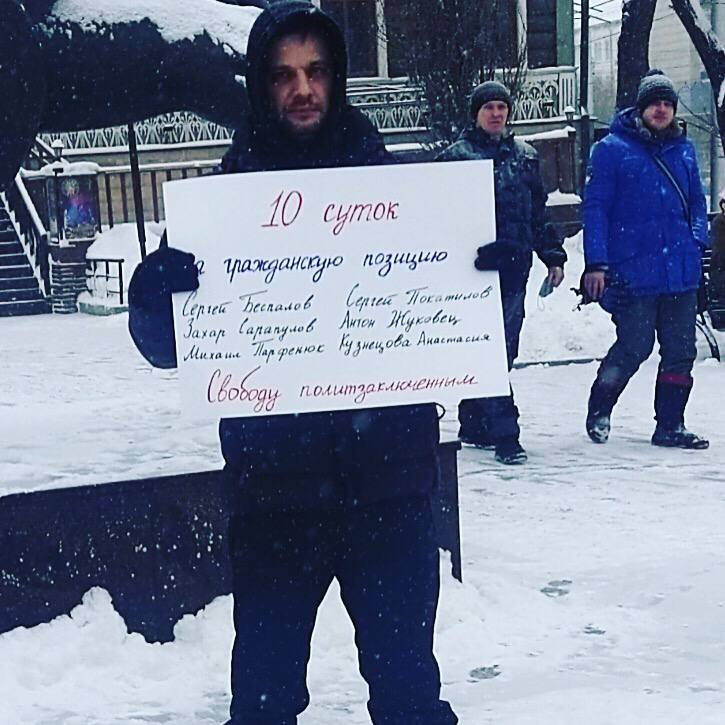 10 суток
за гражданскую позицию
Сергей Беспалов Сергей Покатилов
Захар Сарапулов Антон Жуковец
Михаил Парфенюк Кузнецова Анастасия
Свободу политзаключенным